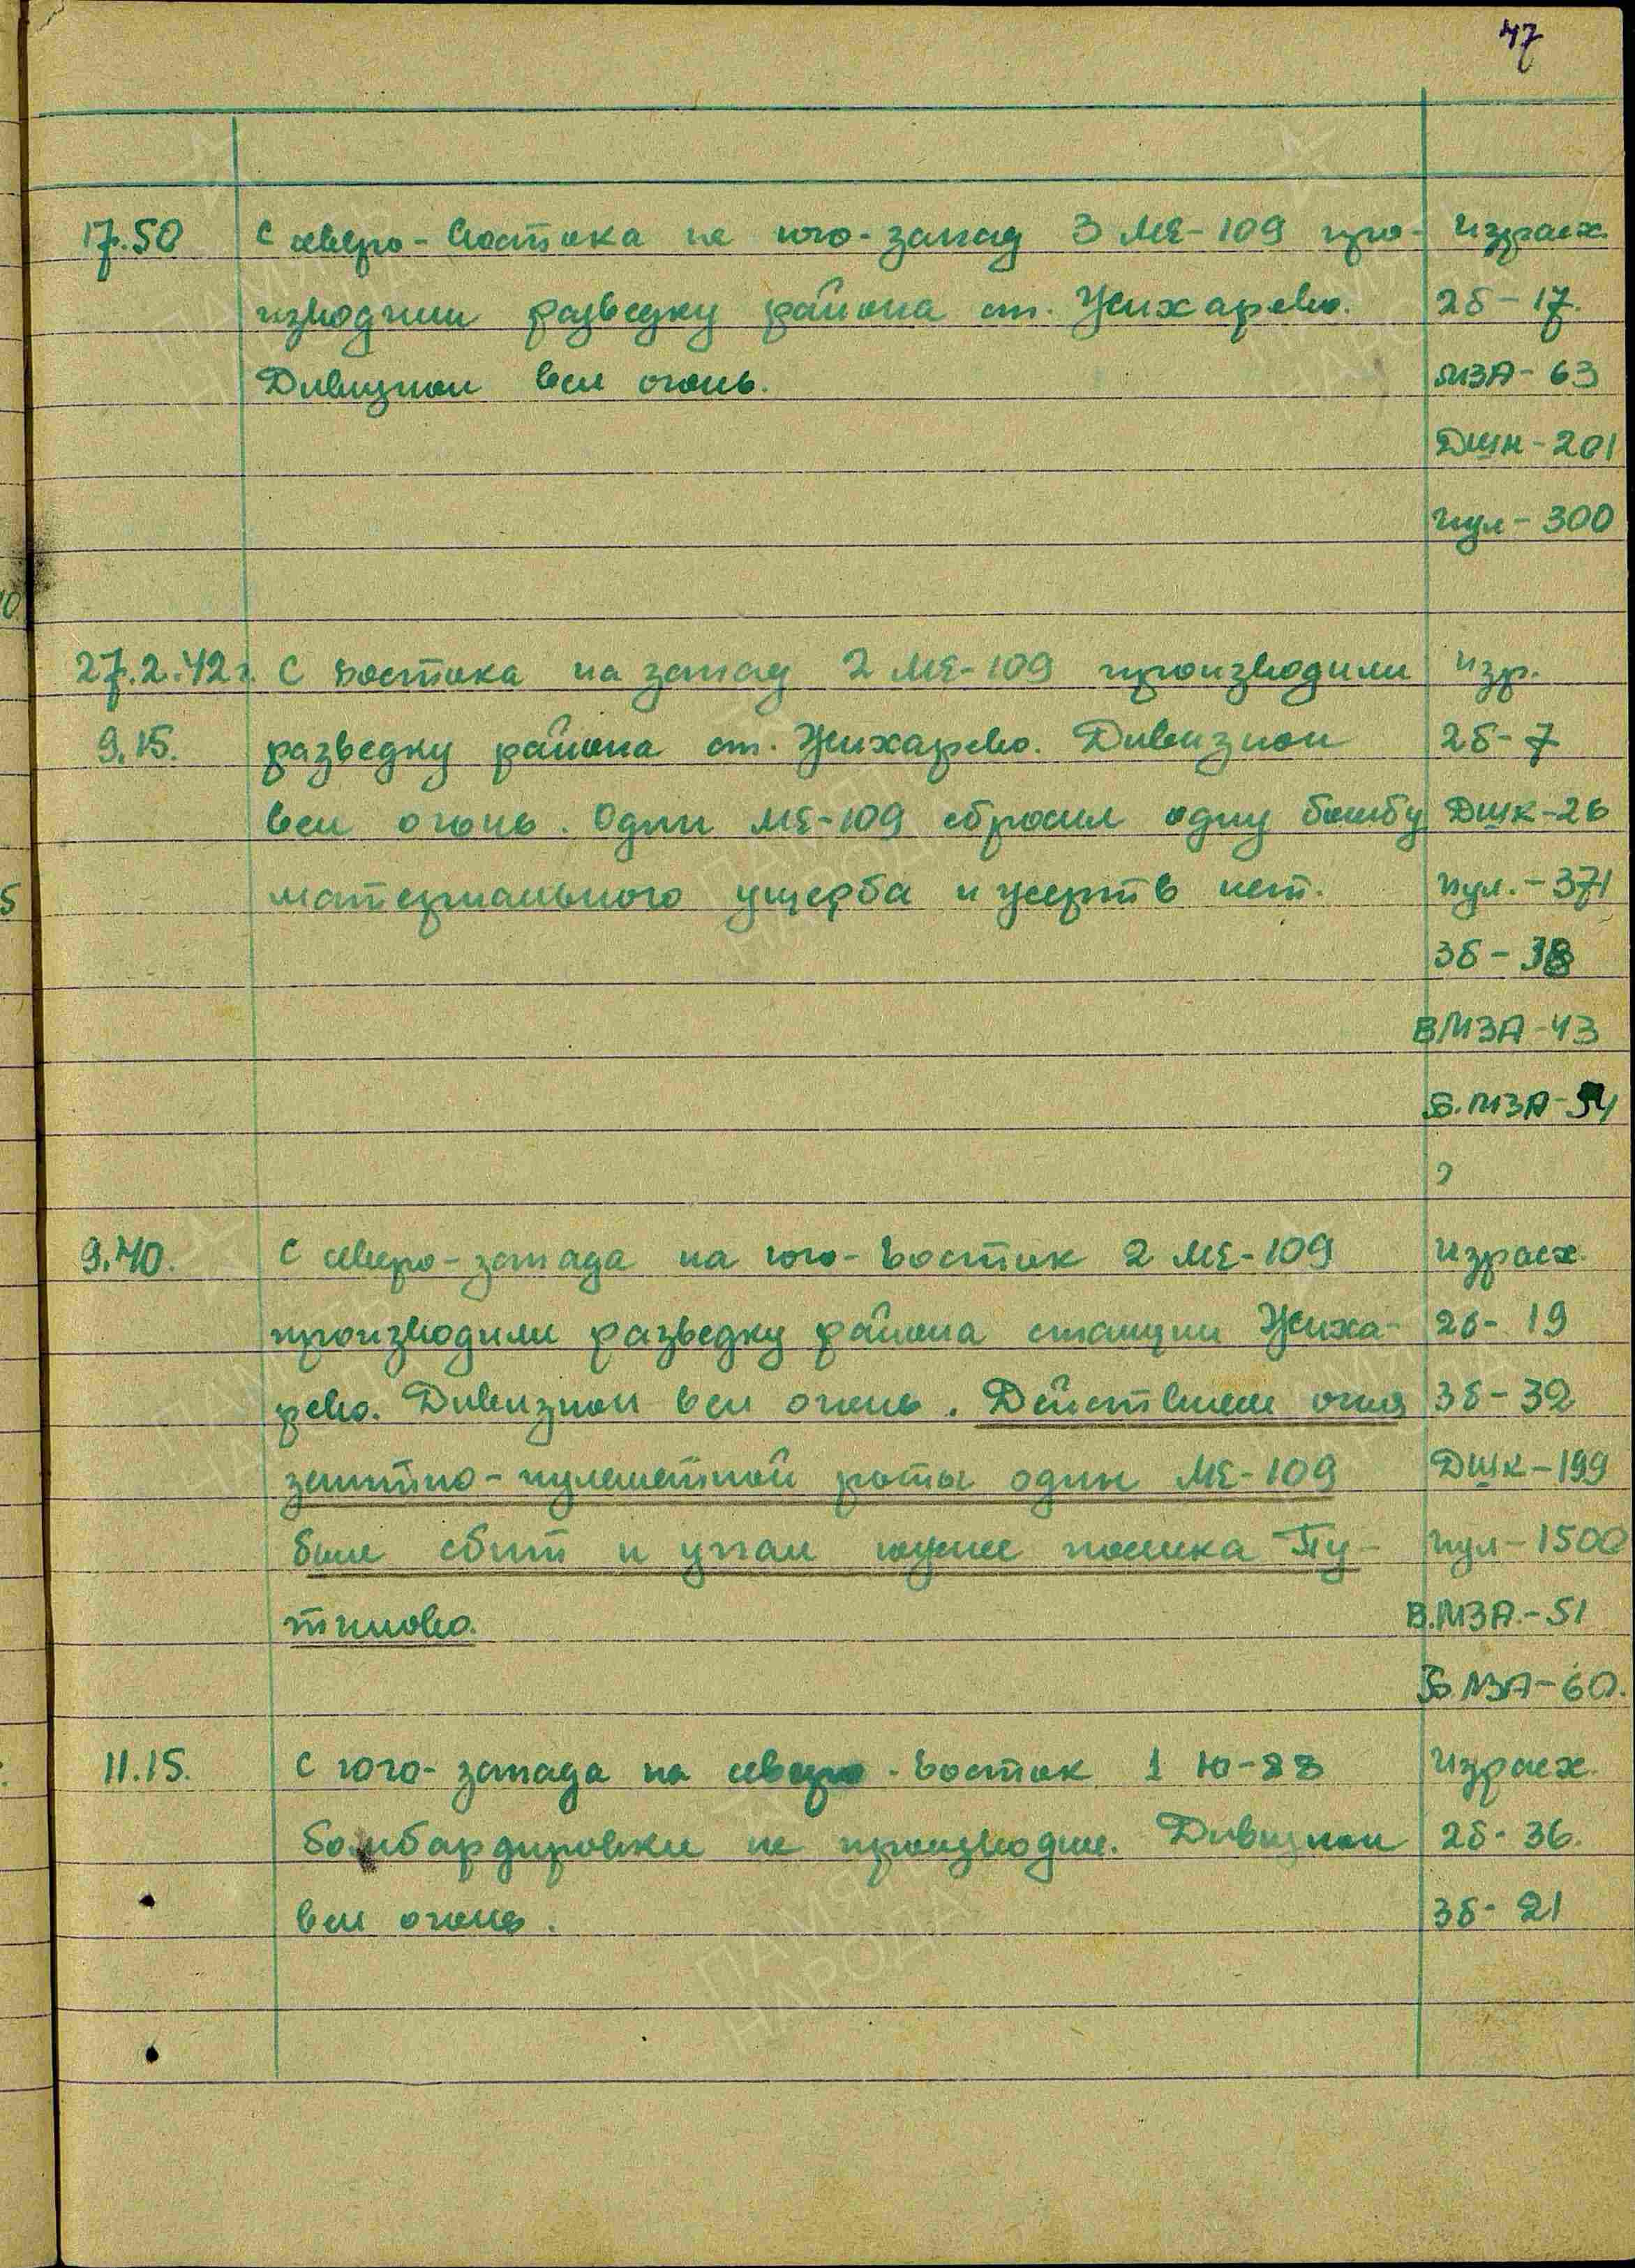 47
17.50 С северо-востока на юго-запад 3 МЕ-109 про- Израсх.
изводили разведку района ст. Жихарево. 2б-17.
Дивизион вел огонь. МЗА-63
ДШК-201
пул-300
27.2.42г. С востока на запад 2 МЕ-109 производили Изр.
9.15. разведку района ст. Жихарево. Дивизион 2б-7
вел огонь. Один МЕ-109 сбросил одну бомбу ДШК-26
материального ущерба и жертв нет. пул.-371
3б-
В.МЗА-43
Б.МЗА-
9.40. С северо-запада на юго-восток 2 МЕ-109 Израсх.
производили разведку района станции Жиха- 2б-19
рево. Дивизион вел огонь. Действием огня 3б-32
зенитно-пулеметной роты один МЕ-109 ДШК-199
был сбит и упал южнее поселка Пу- пул-1500
тилово. В.МЗА.-51
Б.МЗА-60.
11.15. С юго-запада на северо-восток 1 Ю-88 Израсх.
бомбардировки не производил. Дивизион 2б-36.
вел огонь. 3б-21
ПАМЯТЬ НАРОДА